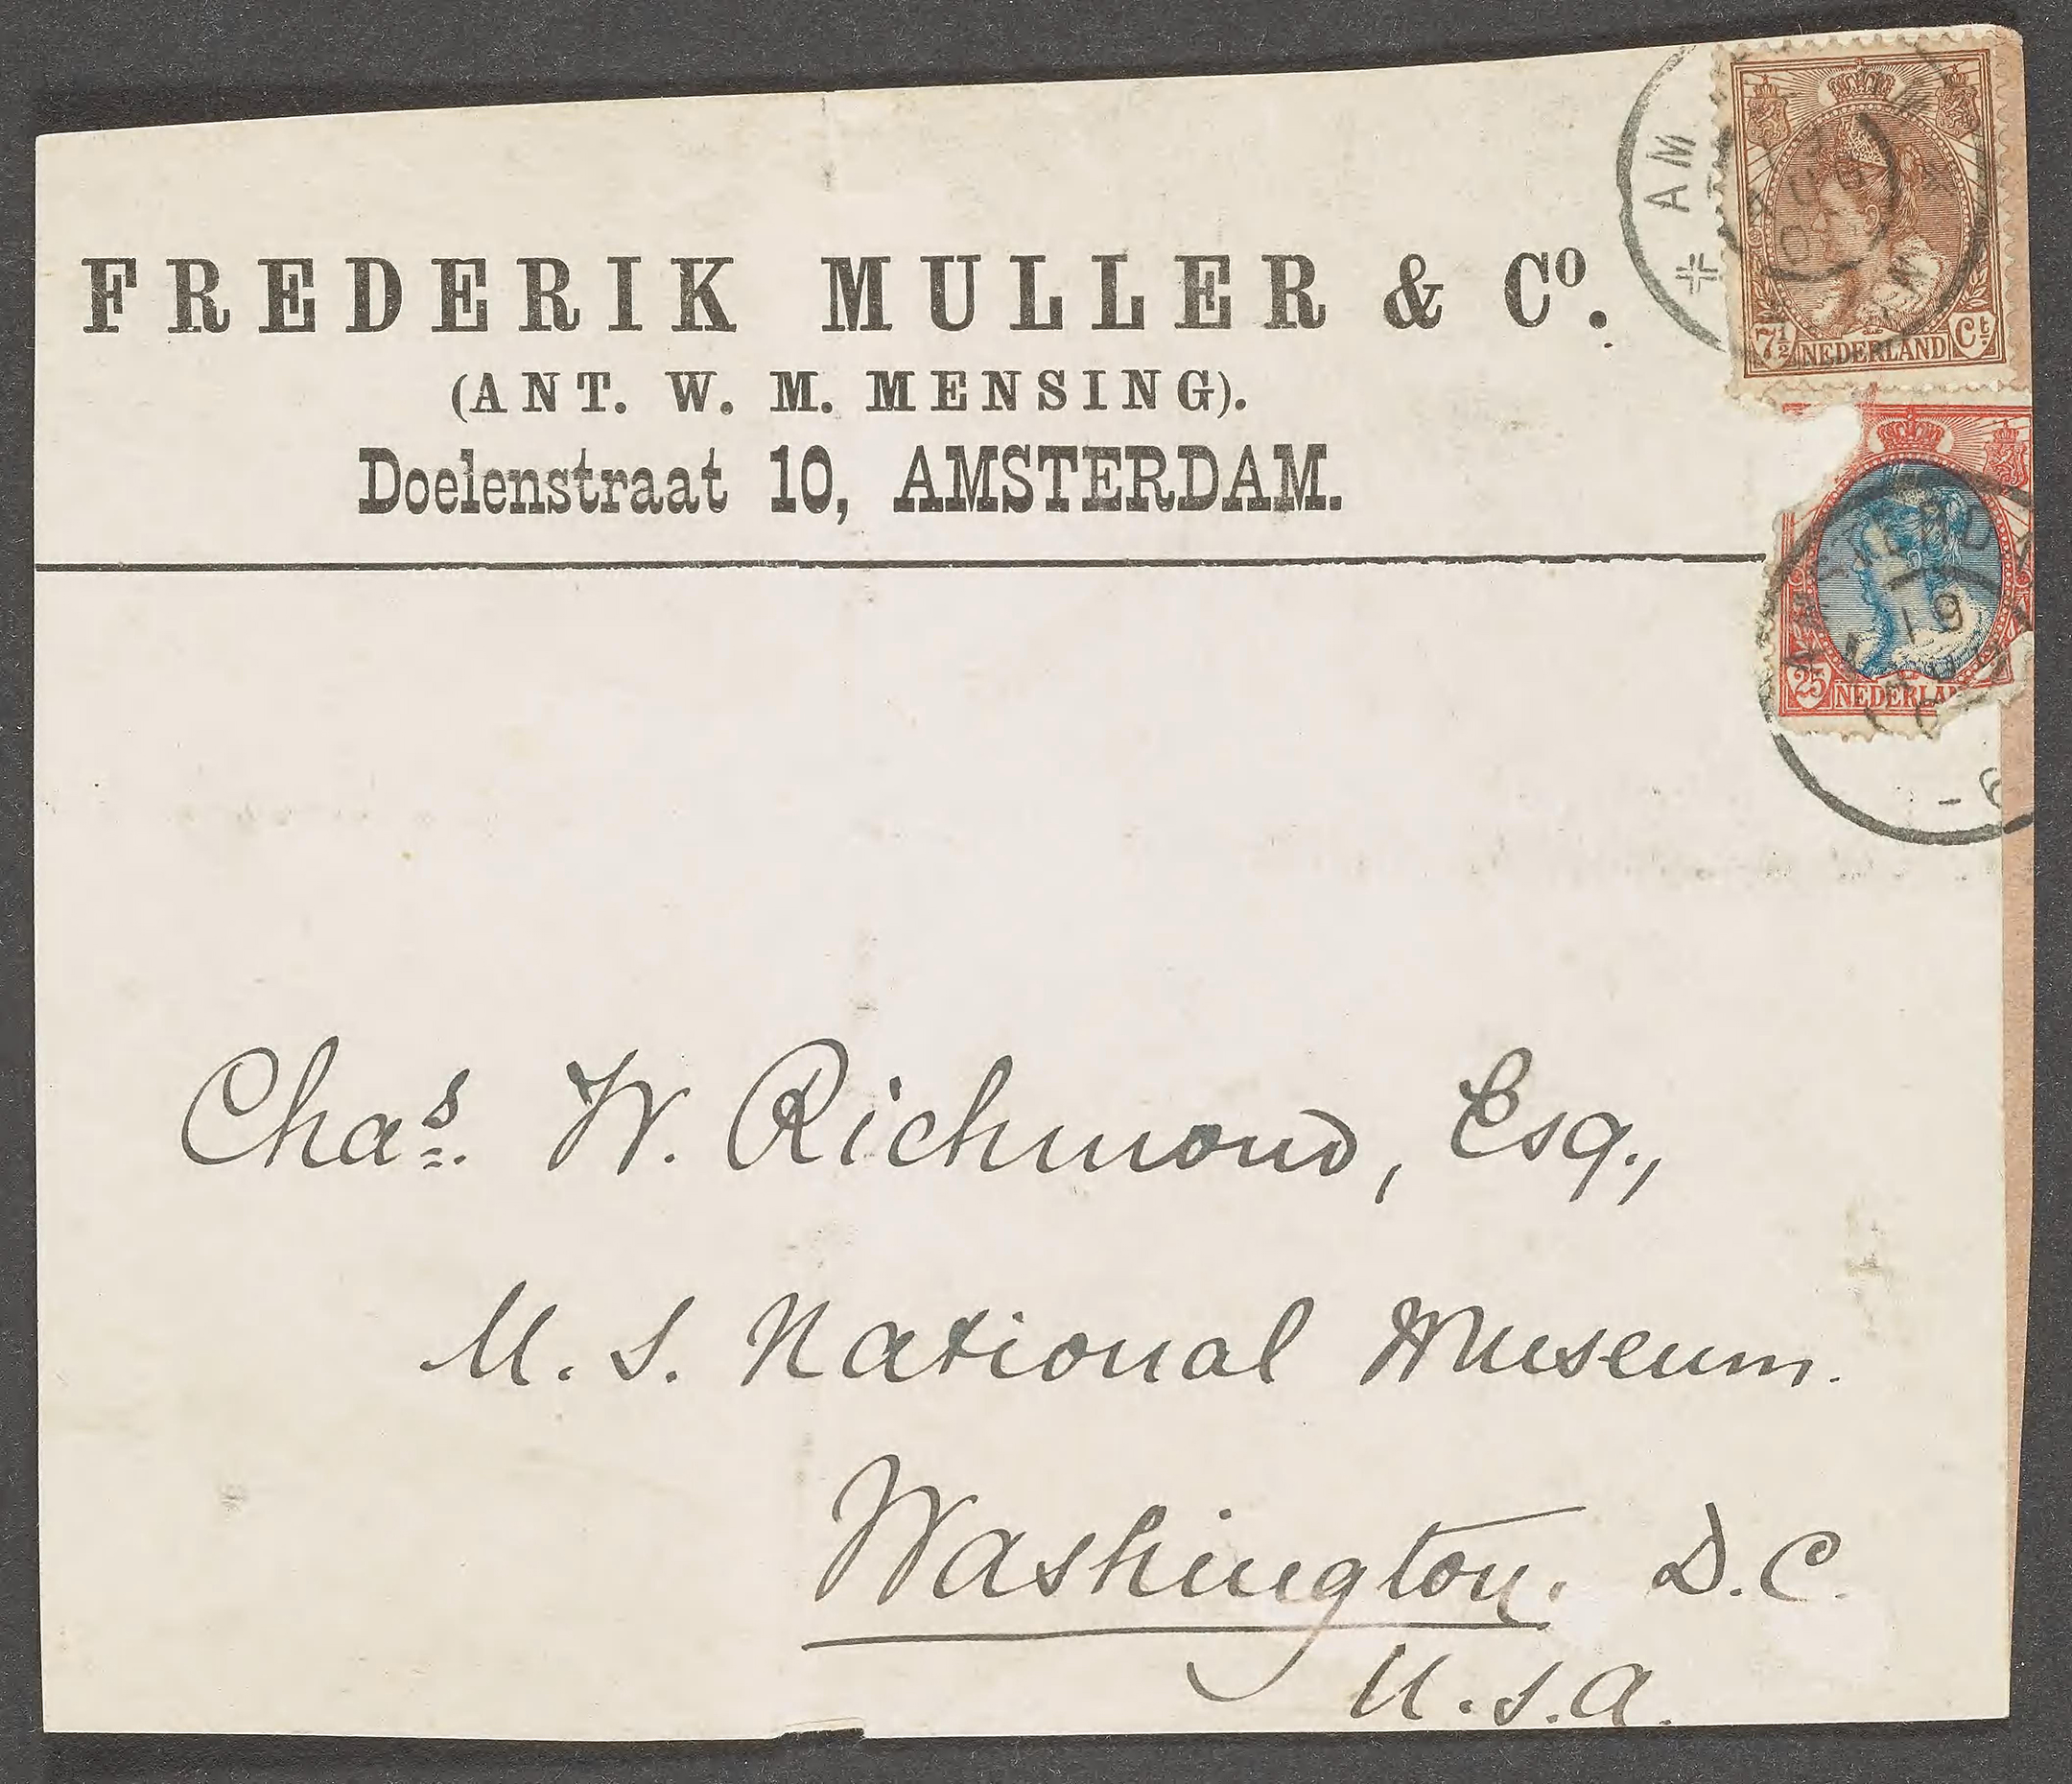 FREDERIK MULLER & Cº.
(ANT. W. M. MENSING).
Doelenstraat 10, AMSTERDAM.
7½ NEDERLAND Ct
25 NEDERLAN
19
Chas. W. Richmond, Esq.,
U. S. National Museum.
Washington. D.C.
U.S.A.